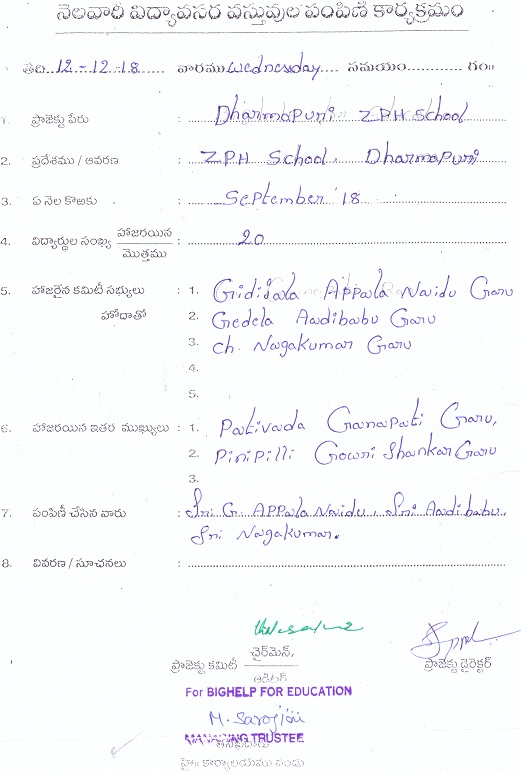 నెలవారీ విద్యావసర వస్తువుల పంపిణీ కార్యక్రమం
తేది 12-12-18 వారము Wednesday సమయం గం॥
1. ప్రాజెక్టు పేరు : Dharmapuri ZPH School
2. ప్రదేశము / ఆవరణ : ZPH School Dharmapuri
3. ఏ నెల కొఱకు : September 18
4. విద్యార్థుల సంఖ్య హాజరయిన / మొత్తము : 20
5. హాజరైన కమిటీ సభ్యులు : 1. Gidijala Appala Naidu Garu
హోదాతో 2. Gedela Aadibabu Garu
3. Ch. Nagakumar Garu
4.
5.
6. హాజరయిన ఇతర ముఖ్యులు : 1. Pativada Ganapati Garu,
2. Pinipilli Gowri Shankar Garu
3.
7. పంపిణీ చేసిన వారు : Sri G. Appala Naidu, Sri Aadibabu,
Sri Nagakumar.
8. వివరణ / సూచనలు :
ప్రాజెక్టు కమిటీ చైర్‌మెన్, / ఆడిటర్
ప్రాజెక్టు డైరెక్టర్
For BIGHELP FOR EDUCATION
M. Sarojini
MANAGING TRUSTEE
హై॥ కార్యాలయము నందు